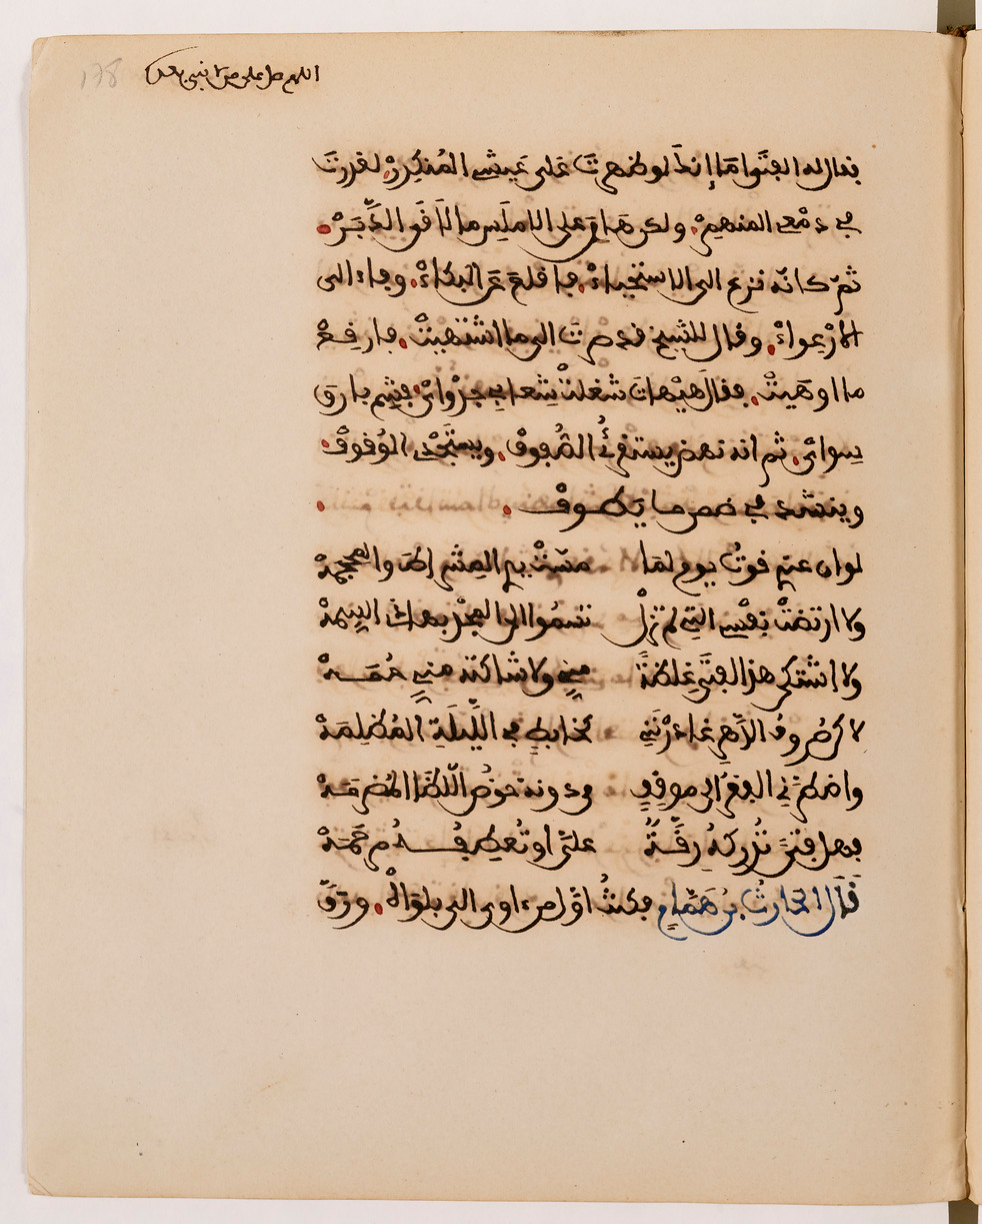 اللهم صل على من لا نبي بعده 178
فقال له الفتَى اما إنك لو ظهرتَ على عَيشي المُنكدِرْ لعذرتَ
في دمْعي المنهمِرْ ولكن هَان على الاملَس ما لاقَى الدَّبَرْ
ثمّ كانّه نزع الى الاستحياءْ فاقلعَ عَن البُكاءْ وفاء الى
الارْعِواءْ وقال للشيخ قد صرتَ الى ما اشتهيتْ فارقعْ
ما اوهَيتْ فقال هَيْهاتَ شغلتْ شِعابي جَدْوايْ فشِم بارق
سِوايْ ثم انه نهض يستقرئُ الصُّفوفْ ويستَجْدي الوُقوفْ
وينشد في ضمن ما يَطوفْ
لو ان عندي قوتُ يومٍ لمَا مسّتْ يدي المِشراطَ والمِحجمهْ
ولا ارتضتْ نفسي التي لم تزلْ تسمُوا الى المجْد بهذي السِمهْ
ولا اشتكى هذا الفتَى غِلظةً مِني ولا شاكتْه مني حُمَـهْ
لاكن صُروفُ الدَّهرِ غادرْنَني كخابطٍ في اللَّيلَةِ المُظلِمَهْ
واضطرَّنِي الفقرُ الى موقِفٍ من دونه خوضُ اللّظَا المُضرمَهْ
فهل فتىً تُدركهُ رِقَّةٌ علَيَّ او تُعطِفُـهُ مرحَمَهْ
قَالَ الحَارِثُ بن هَمَّامٍ فكنتُ اوّل من اوى الى بلواهْ ورَقّ